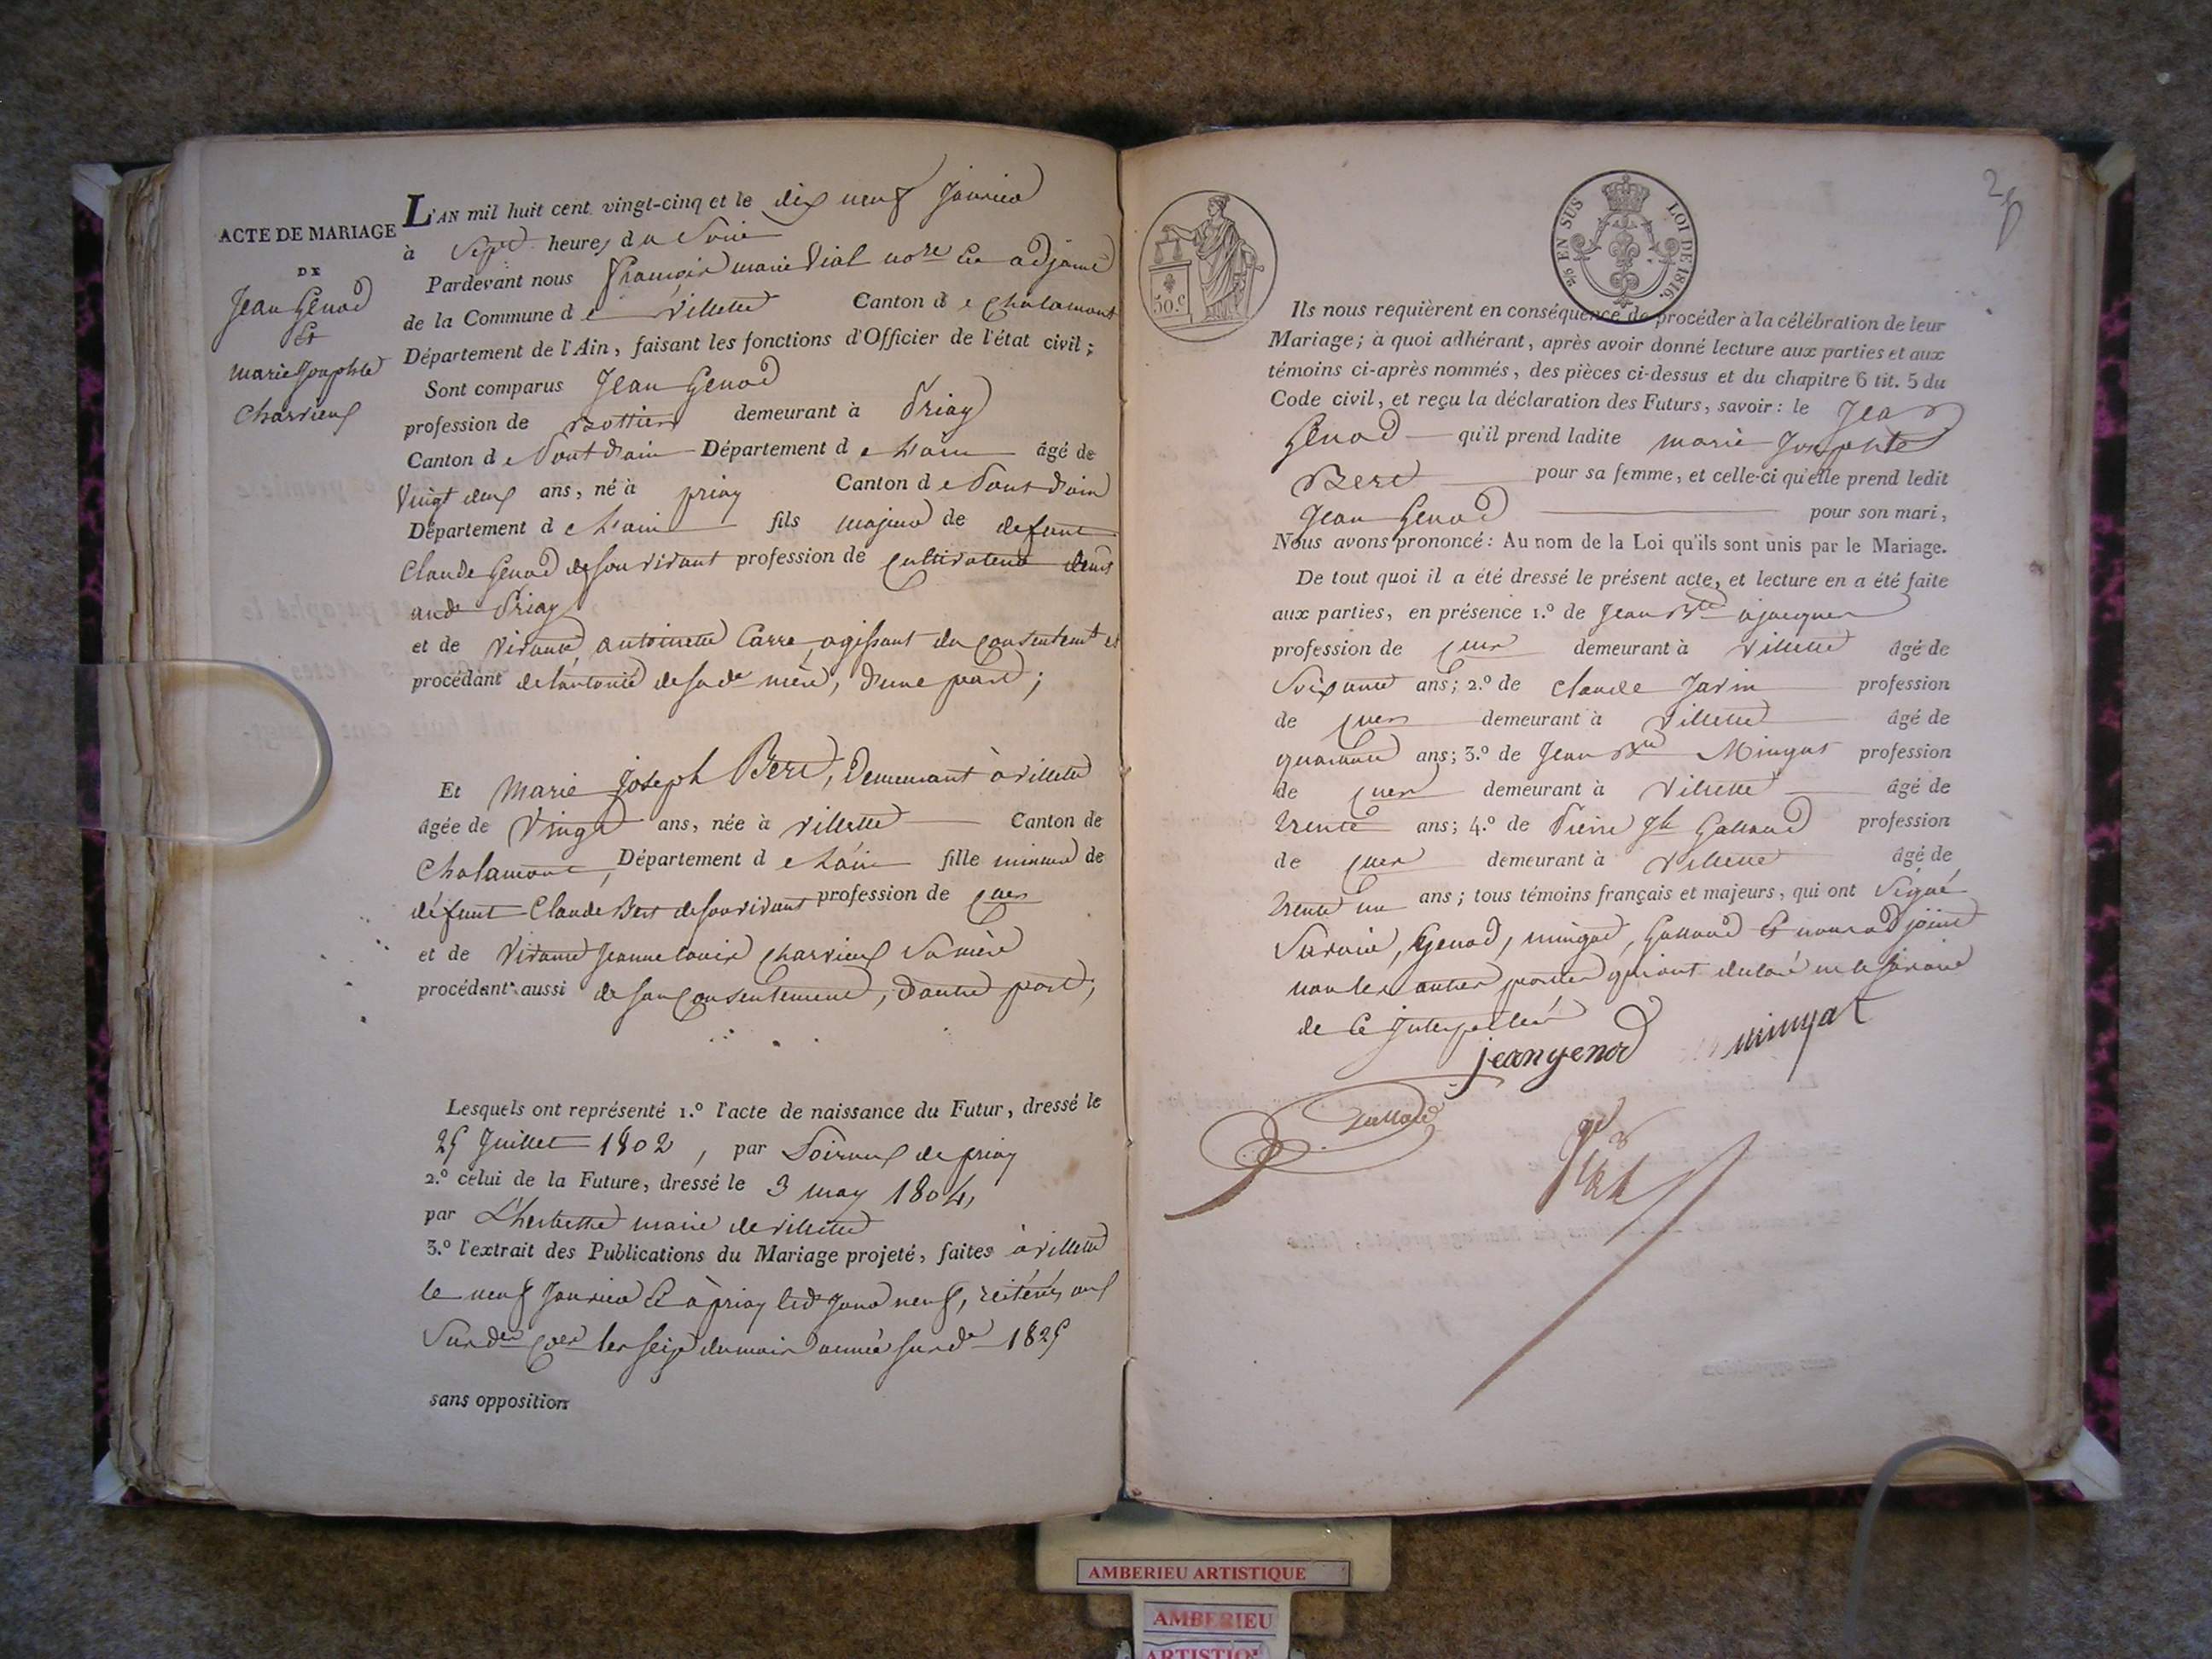 ACTE DE MARIAGE
DE
Jean Genod
Et
marie Josephte
Charvieux
L'AN mil huit cent vingt-cinq et le dix neuf Janvier
à Sept heures du Soir
Pardevant nous François marie Vial not.re Et adjoint
de la Commune de Villette Canton de Chalamont
Département de l'Ain, faisant les fonctions d'Officier de l'état civil;
Sont comparus Jean Genod
profession de Bottier demeurant à Priay
Canton de Pontdain Département de L'ain âgé de
Vingt deux ans, né à priay Canton de Pontdain
Département de L'ain fils majeur de defunt
Claude Genod de son vivant profession de Cultivateur
Priay
et de vivante antoinette Carre, agissant du Consentem.t et
procédant de lautorité de sad.e mère, d'une part;
Et Marie Joseph Bert, Demeurant à villette
âgée de Vingt ans, née à villette Canton de
Chalamont, Département de L'ain fille mineure de
défunt Claude Bert de son vivant profession de
et de vivante Jeanne Louise Charvieux Sa mère
procédant aussi de son Consentement, dautre part;
Lesquels ont représenté 1.º l'acte de naissance du Futur, dressé le
25 Juillet 1802, par de priay
2.º celui de la Future, dressé le 3 may 1804,
par L'herbette maire de villette
3.º l'extrait des Publications du Mariage projeté, faites à villette
le neuf Janvier Et à priay led. Jour neuf, reitérés aux
Susd.es les seize du mois année susd.e 1825
sans opposition
50.C
5/6 EN SUS LOI DE 1816.
Ils nous requièrent en conséquence de procéder à la célébration de leur
Mariage; à quoi adhérant, après avoir donné lecture aux parties et aux
témoins ci-après nommés, des pièces ci-dessus et du chapitre 6 tit. 5 du
Code civil, et reçu la déclaration des Futurs, savoir: le Jean
Genod qu'il prend ladite marie Josephte
Bert pour sa femme, et celle-ci qu'elle prend ledit
Jean Genod pour son mari,
Nous avons prononcé: Au nom de la Loi qu'ils sont unis par le Mariage.
De tout quoi il a été dressé le présent acte, et lecture en a été faite
aux parties, en présence 1.º de Jean B.te
profession de demeurant à Villette âgé de
Soixante ans; 2.º de Claude Jarin profession
de demeurant à Villette âgé de
quarante ans; 3.º de Jean B.te Mingat profession
de demeurant à Villette âgé de
trente ans; 4.º de Pierre Jh Galland profession
de demeurant à Villette âgé de
trente un ans; tous témoins français et majeurs, qui ont Signé
Savoir, Genod, mingat, Galland Et nous adjoint
non les autres parties qui ont declaré ne le savoir
de Ce Interpellés
jean genod
mingat
Galland
Vial
AMBERIEU ARTISTIQUE
AMBERIEU
ARTISTIQUE